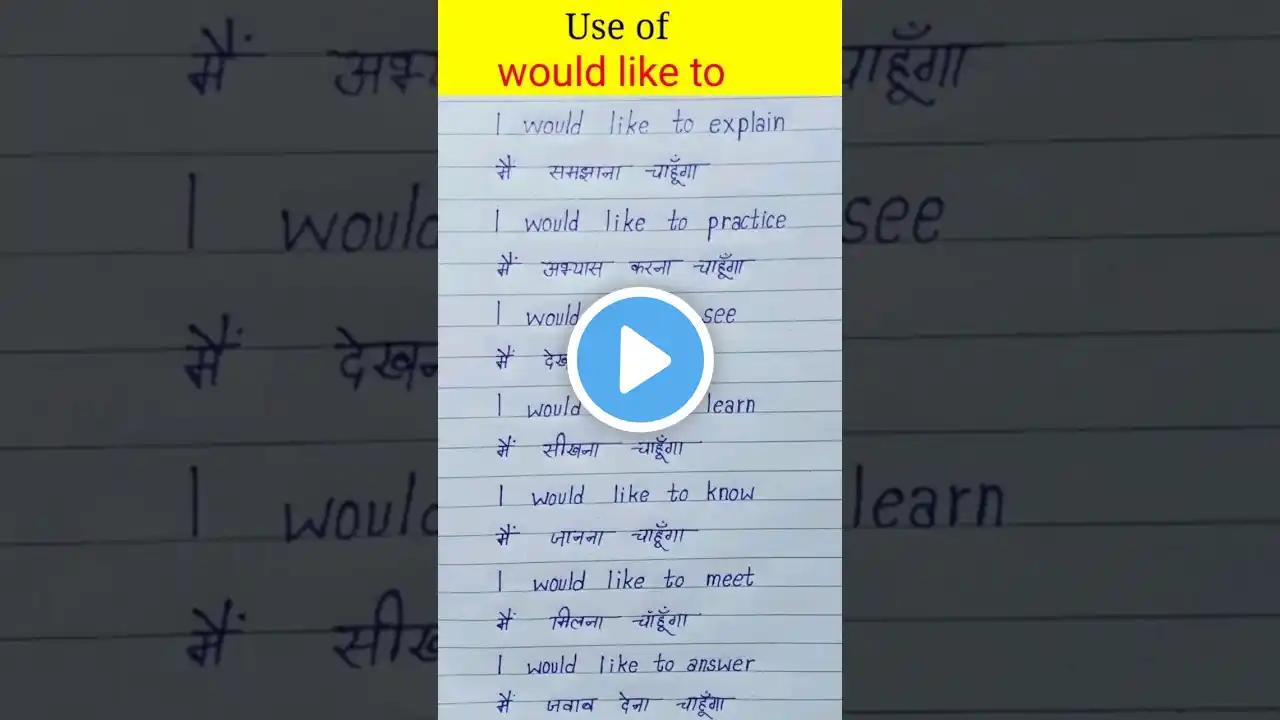 Use of
would like to
I would like to explain
मैं समझाना चाहूँगा
I would like to practice
मैं अभ्यास करना चाहूँगा
I would see
मैं
I would learn
मैं सीखना चाहूँगा
I would like to know
मैं जानना चाहूँगा
I would like to meet
मैं मिलना चाहूँगा
I would like to answer
मैं जवाब देना चाहूँगा